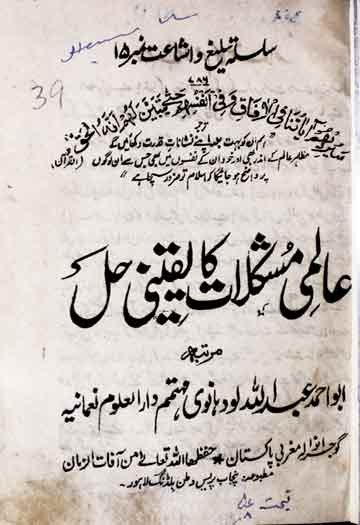 39
سلسلہ تبلیغ و اشاعت نمبر ۱۵
۷۸۶
سنریھم آیاتنا فی الآفاق و فی انفسھم حتی یتبین لھم انہ الحق
ترجمہ
ہم ان کو بہت جلد اپنے نشانات قدرت دکھائیں گے
مظاہر عالم کے اندر بھی اور خود ان کے نفسوں میں بھی جس سے ان لوگوں (القرآن)
پر واضح ہو جائیگا کہ اسلام
عالمی مشکلات کا یقینی حل
مرتبہ
ابو احمد عبد اللہ لودہانوی مہتمم دار العلوم نعمانیہ
گوجرانوالہ مغربی پاکستان حفظھا اللہ تعالےٰ من آفات الزمان
مطبوعہ: پنجاب پریس وطن بلڈنگ لاہور۔
قیمت
۸